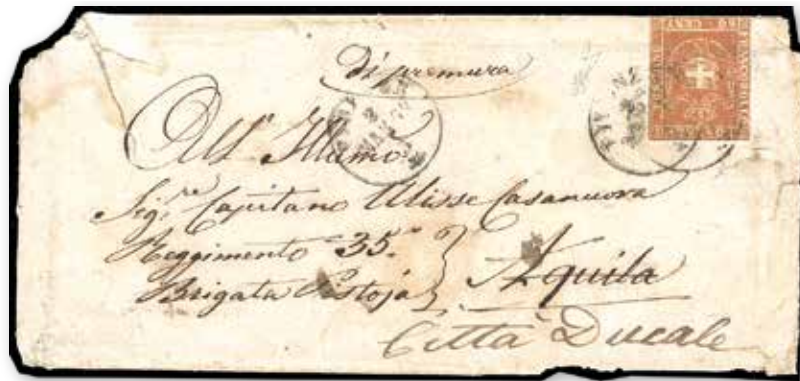 di premura
All' Illmo
Sig.re Capitano Ulisse Casanuova
Reggimento 35.º
Brigata Pistoja
Aquila
Città Ducale